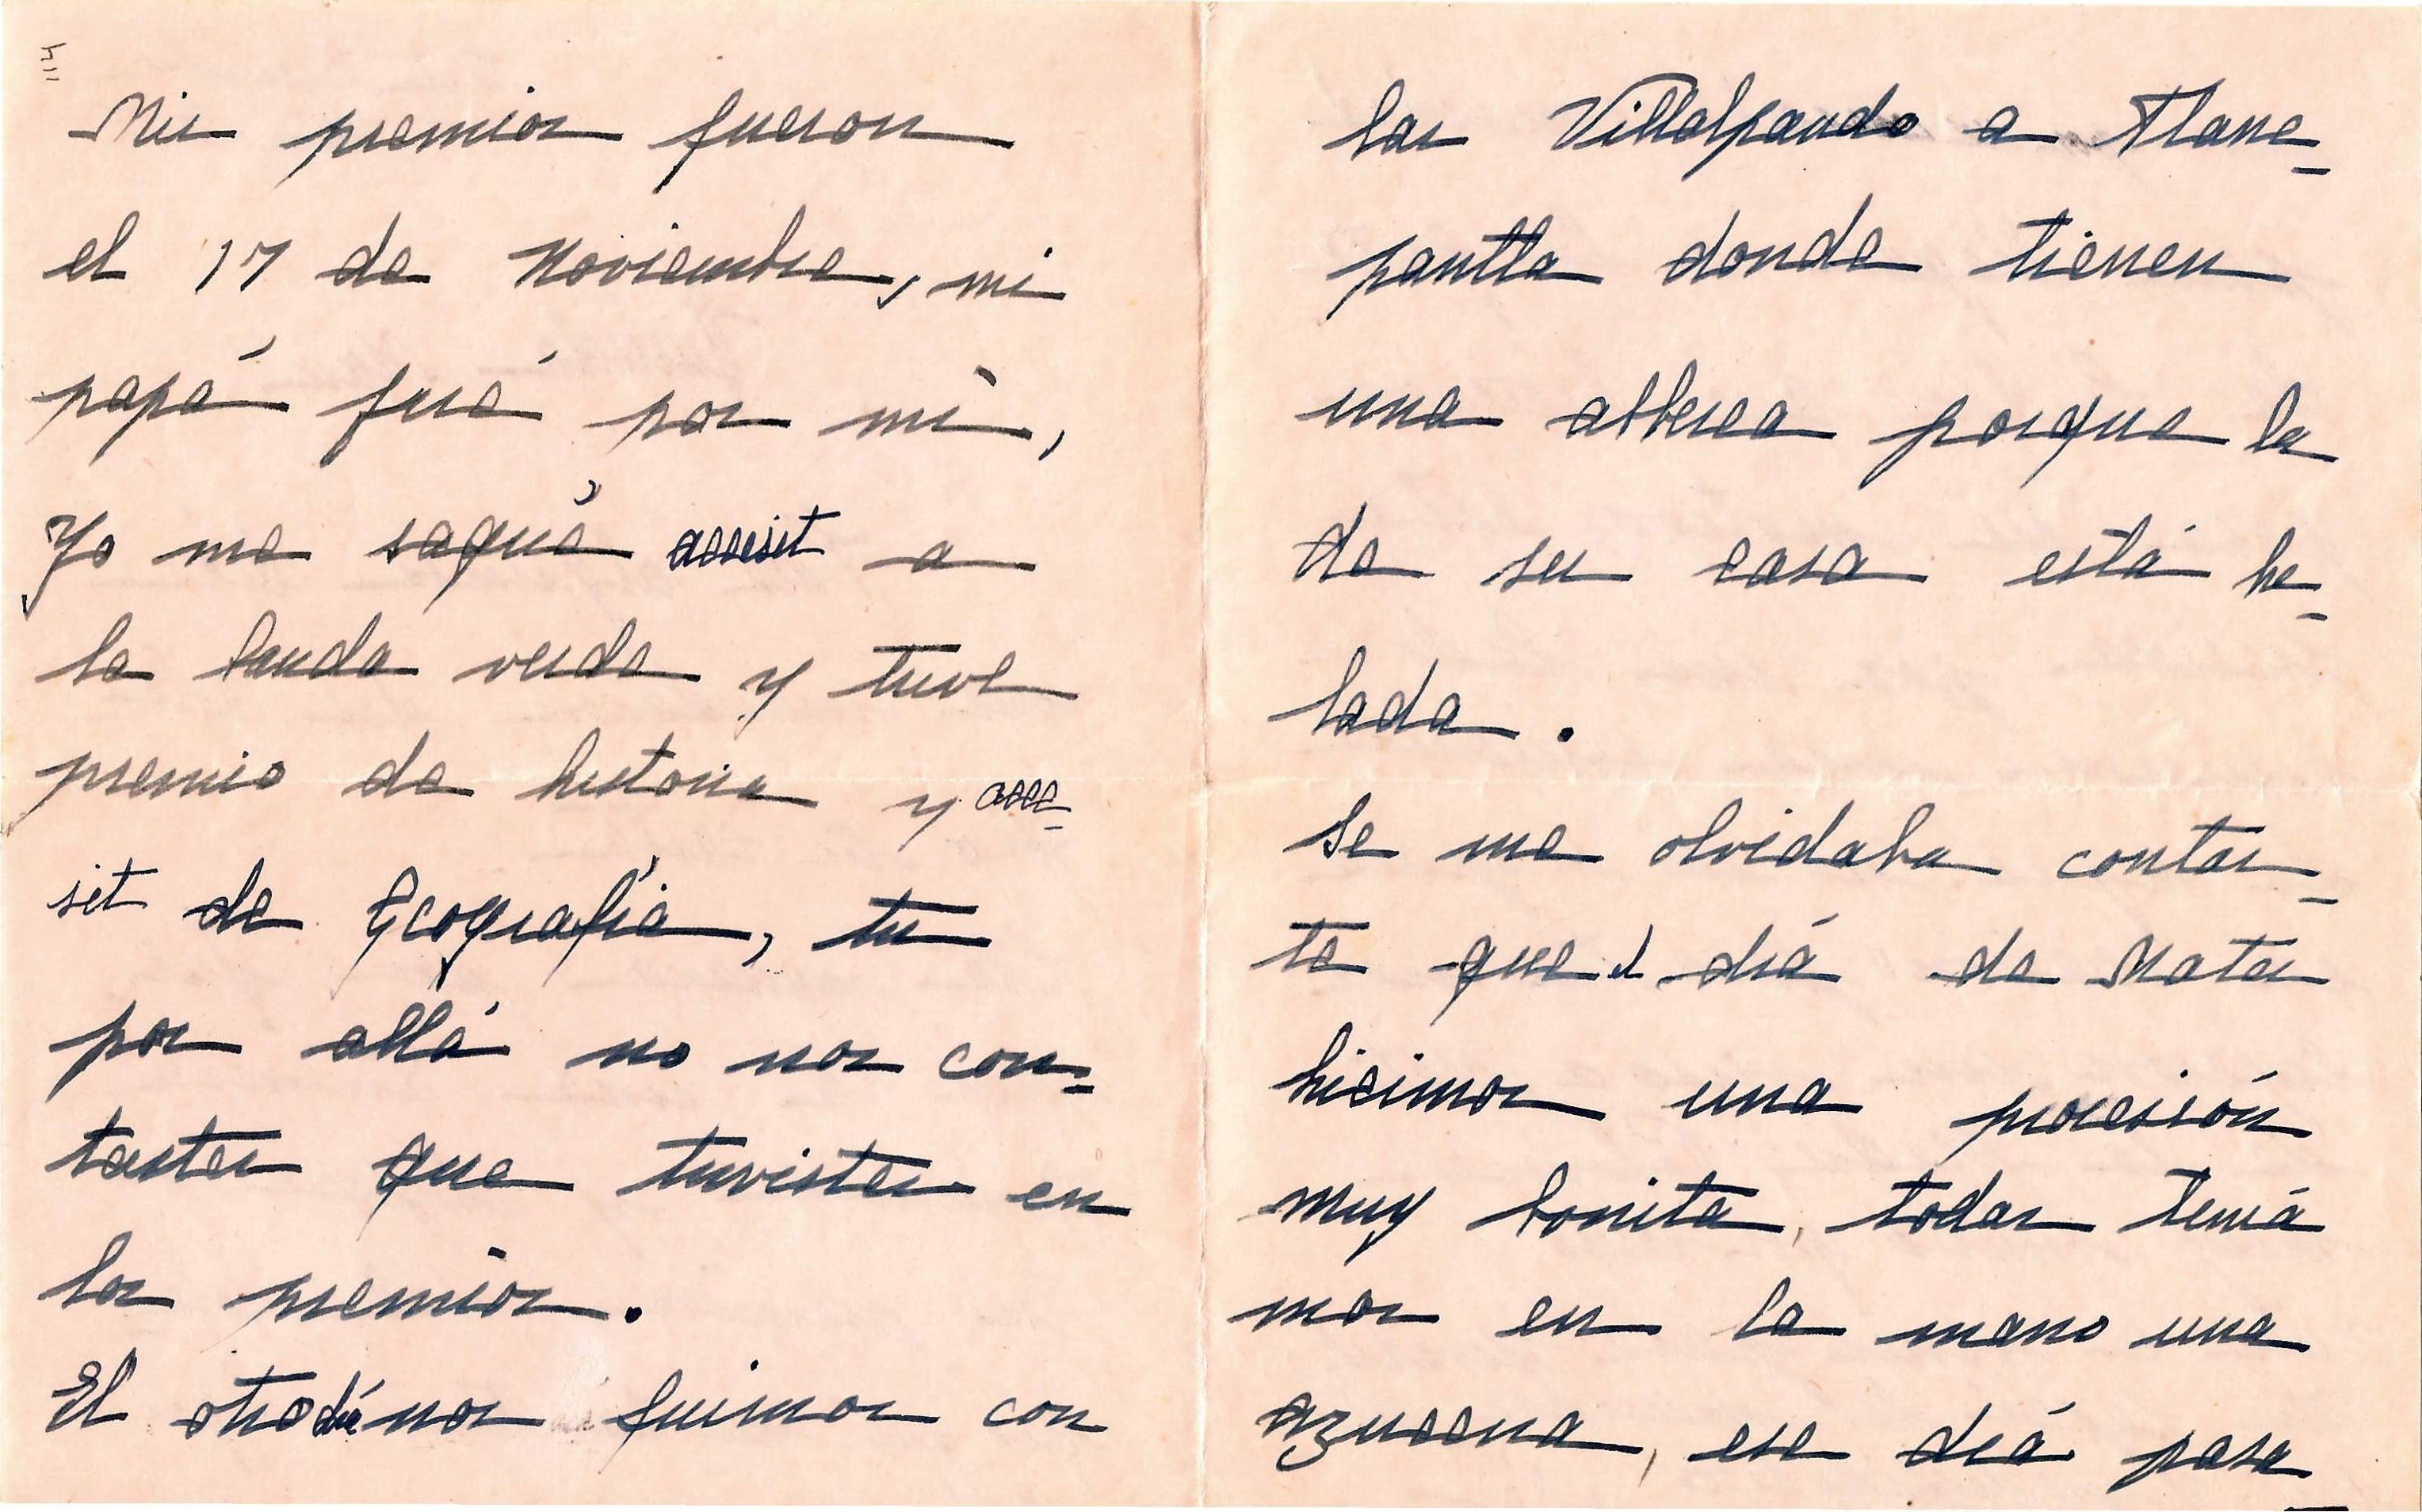 Mis premios fueron
el 17 de Noviembre, mi
papá fué por mí,
Yo me saqué assesit a
la banda verde y tuve
premio de historia y asse-
sit de Geografía, tu
por allá no nos con-
tastes que tuvistes en
los premios.
El otro día nos fuimos con
las Villalpando a Tlane-
pantla donde tienen
una alberca porque la
de su casa está he-
lada.
Se me olvidaba contar-
te que el día de Mater
hicimos una procesión
muy bonita, todas tenía
mos en la mano una
azucena, ese día pasa-